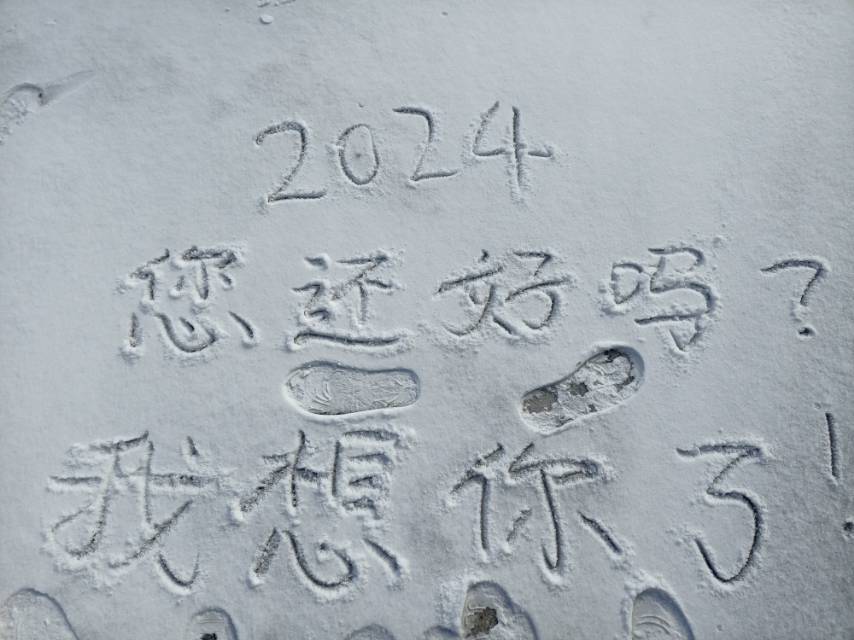 2024
您还好吗?
我想你了!